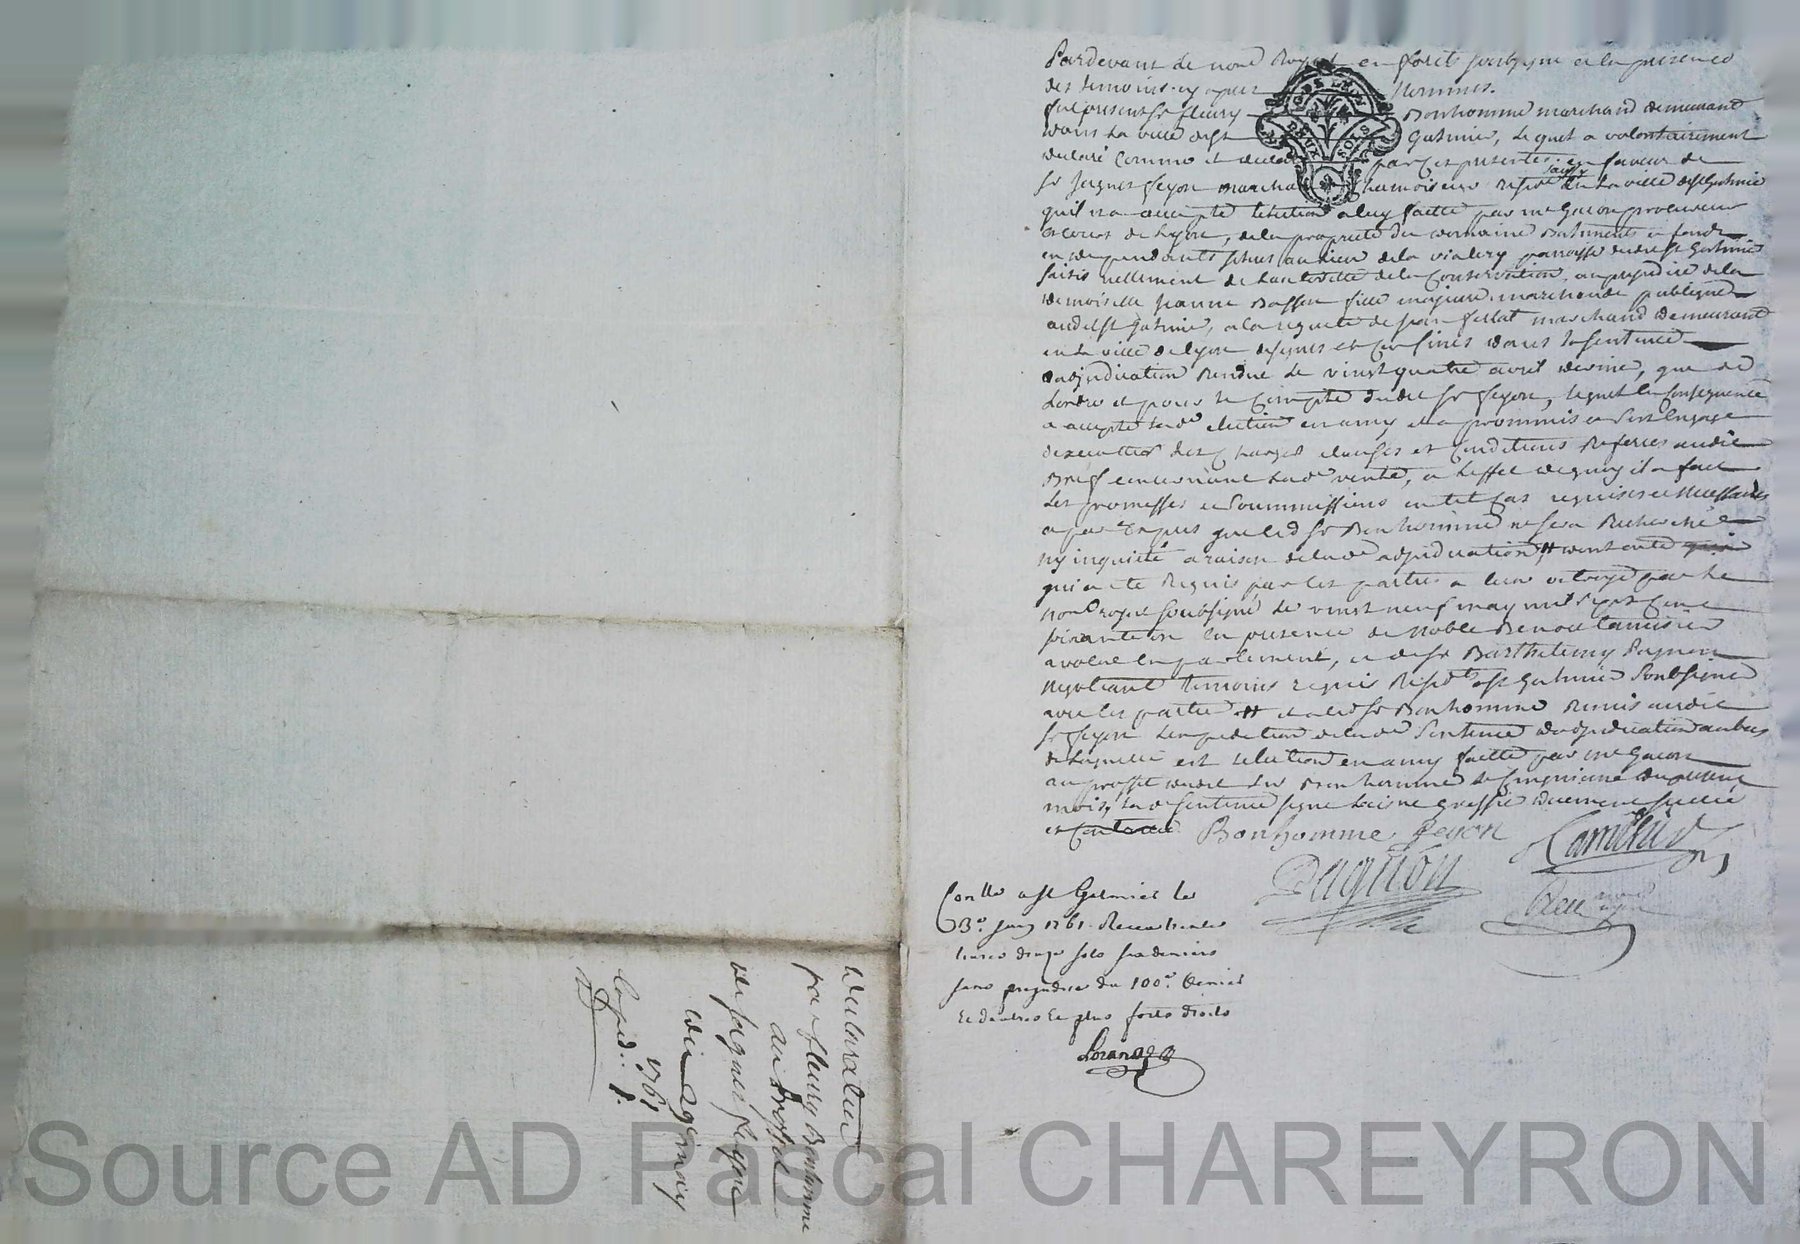 Pardevant le no.re Royal en forêts soubsigné et en présence
des temoins cy apres Nommés.
fut present sr fleury Bonhomme marchand demeurant
dans la ville de st Galmier, Lequel a volontairement
declaré comme il declare par ces presentes en faveur de
sr Jaques feyon marchand chamoiseur resid.t en la ville de st Galmier
qu'il n'a accepté l'election a luy faitte par me Gacon procureur
es cours de Lyon, de la propriete du domaine Batiments et fonds
en dependants situés au lieu de la vialery parroisse dudit st Galmier
saisis reellement de l'authorité de la Conservation, au prejudice de la
demoiselle Jeanne Basson fille majeure marchande publique
audit st Galmier, a la requete de Jean fellat marchand demeurant
en la ville de Lyon designés et confinés dans la sentence
d'adjudication Rendue le vingt quatre avril dernier, que de
L'ordre et pour le Compte dudit sr feyon, lequel en consequence
a accepté lad.e election en amy et a prommis et s'est engagé
d'executter les charges clauses et conditions Referées audit
Bref concernant lad.e vente, a l'effet de quoy il a fait
Les promesses et Soummissions en tel cas requises et Necessaires
ny inquieté a raison de lad.e adjudication # dont acte
qui a été Requis par les parties a leur octroyé par le
no.re royal soubsigné le vingt neuf may mil sept cent
soixante un en presence de Noble Benoit Camisier
avocat en parlement, et de sr Barthelemy Pagnon
Negotiant temoins requis Resid.ts a st Galmier Soubsignés
avec les parties # et a led sr Bonhomme Remis audit
sr feyon L'expedition de lad.e Sentence d'adjudication au bas
de laquelle est l'election en amy faitte par me Gacon
au proffit dudit sr Bonhomme le cinquieme du present
mois, lad.e Sentence signé greffier
et Bonhomme feyon Camisier
Pagnon
Con.llé a st Galmier le
3.e juin 1761. Receu
sols six deniers
sans prejudice du 100.e denier
Et d'autres et plus forts droits
Lorange
Declaration
par fleury Bonhomme
au proffit
de Jaques feyon
du 29e may
1761
Source AD Pascal CHAREYRON